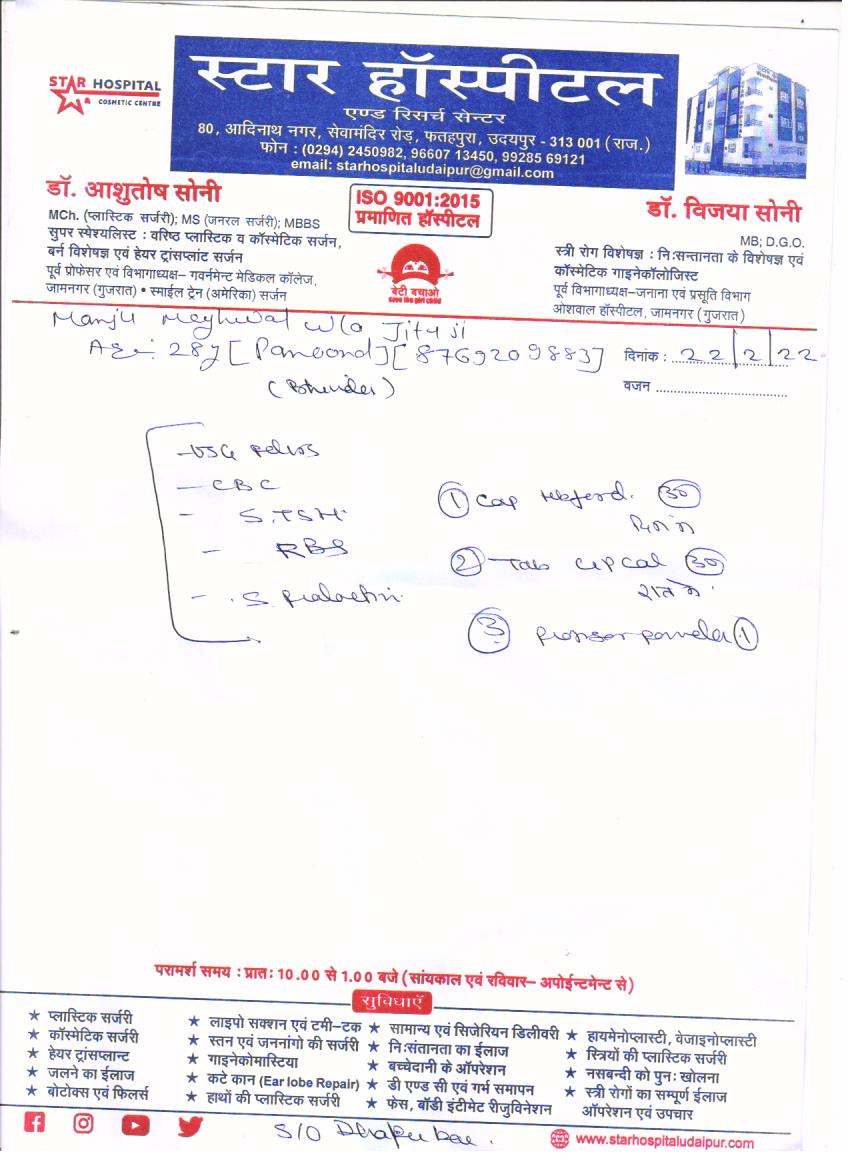 STAR HOSPITAL
& COSMETIC CENTRE
स्टार हॉस्पीटल
एण्ड रिसर्च सेन्टर
80, आदिनाथ नगर, सेवामंदिर रोड़, फतहपुरा, उदयपुर - 313 001 (राज.)
फोन : (0294) 2450982, 96607 13450, 99285 69121
email: starhospitaludaipur@gmail.com
डॉ. आशुतोष सोनी
MCh. (प्लास्टिक सर्जरी); MS (जनरल सर्जरी); MBBS
सुपर स्पेश्यलिस्ट : वरिष्ठ प्लास्टिक व कॉस्मेटिक सर्जन,
बर्न विशेषज्ञ एवं हेयर ट्रांसप्लांट सर्जन
पूर्व प्रोफेसर एवं विभागाध्यक्ष– गवर्नमेन्ट मेडिकल कॉलेज,
जामनगर (गुजरात) • स्माईल ट्रेन (अमेरिका) सर्जन
ISO 9001:2015
प्रमाणित हॉस्पीटल
बेटी बचाओ
Save the girl child
डॉ. विजया सोनी
MB; D.G.O.
स्त्री रोग विशेषज्ञ : निःसन्तानता के विशेषज्ञ एवं
कॉस्मेटिक गाइनेकॉलोजिस्ट
पूर्व विभागाध्यक्ष–जनाना एवं प्रसूति विभाग
ओशवाल हॉस्पीटल, जामनगर (गुजरात)
Manju Meghwal w/o Jitu ji
Age:- 28y [ ] [8769209883] दिनांक : 22/2/22
(Bhinder) वजन
- USG pelvis
- CBC
- S.TSH
- RBS
- S. Prolactin
① Cap 30
② Tab 30
रात में
③ powder ①
परामर्श समय : प्रातः 10.00 से 1.00 बजे (सांयकाल एवं रविवार– अपोईन्टमेन्ट से)
सुविधाएँ
★ प्लास्टिक सर्जरी
★ कॉस्मेटिक सर्जरी
★ हेयर ट्रांसप्लान्ट
★ जलने का ईलाज
★ बोटोक्स एवं फिलर्स
★ लाइपो सक्शन एवं टमी–टक
★ स्तन एवं जननांगो की सर्जरी
★ गाइनेकोमास्टिया
★ कटे कान (Ear lobe Repair)
★ हाथों की प्लास्टिक सर्जरी
★ सामान्य एवं सिजेरियन डिलीवरी
★ निःसंतानता का ईलाज
★ बच्चेदानी के ऑपरेशन
★ डी एण्ड सी एवं गर्भ समापन
★ फेस, बॉडी इंटीमेट रीजुविनेशन
★ हायमेनोप्लास्टी, वेजाइनोप्लास्टी
★ स्त्रियों की प्लास्टिक सर्जरी
★ नसबन्दी को पुनः खोलना
★ स्त्री रोगों का सम्पूर्ण ईलाज
ऑपरेशन एवं उपचार
S/O
www.starhospitaludaipur.com